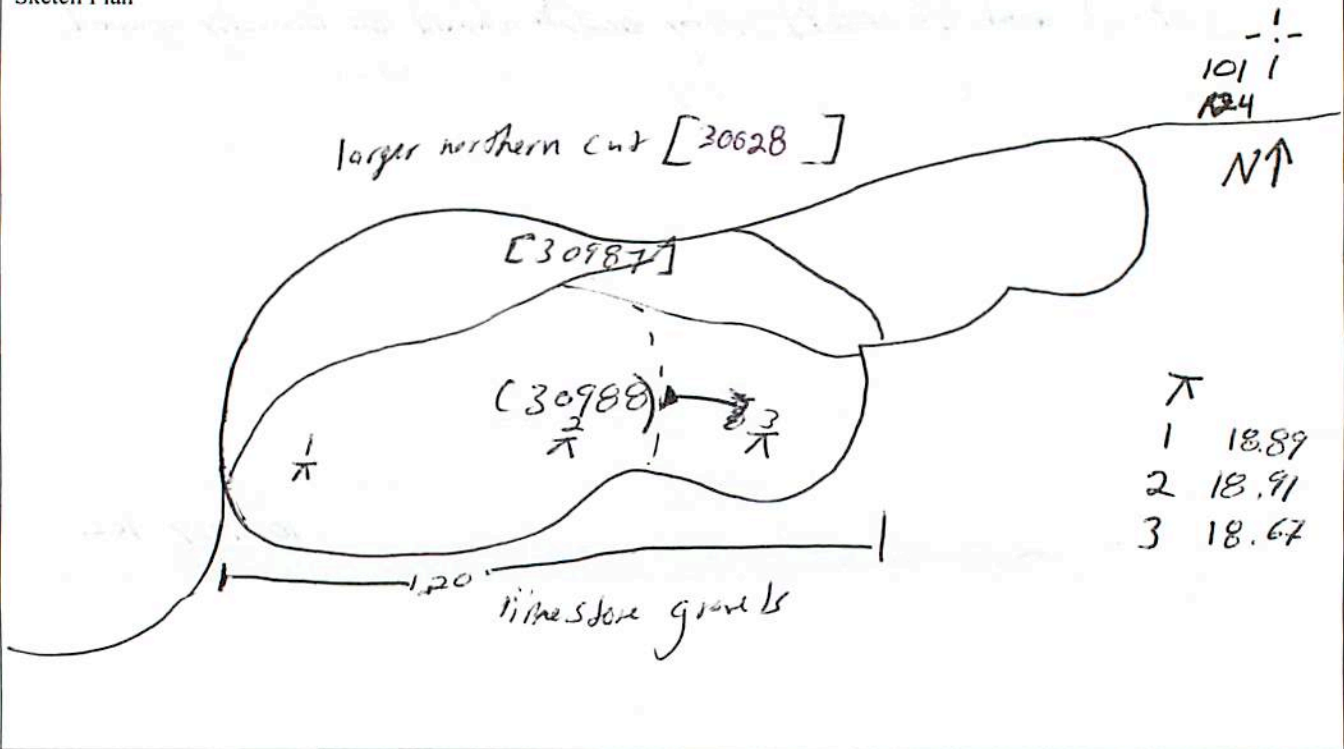 Sketch Plan
101
larger northern cut [30628]
N↑
[30987]
(30988)
1
2
3
1 18.89
2 18.91
3 18.67
1.20
limestone gravels